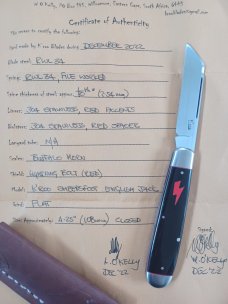 W O Kelly, PO Box 395, Willowmore, Eastern Cape, South Africa, 6445
Certificate of Authenticity
This serves to certify the following:
Knife made by K'roo Blades during: DECEMBER 2022
Blade: RWL 34
Spring: RWL 34, FILE WORKED
Spine thickness of stock approx:
Liners: 304 STAINLESS, RED ACCENTS
Bolsters: 304 STAINLESS, RED SPACERS
Lanyard tube: N/A
Scales: BUFFALO HORN
Shield: LIGHTNING BOLT (RED)
Model: K'ROO SHEEPSFOOT ENGLISH JACK
Grind: FLAT
Size: Approximately: 4.25" (108mm) CLOSED
Signed:
L. O'KELLY
DEC '22
W. O'KELLY
DEC '22